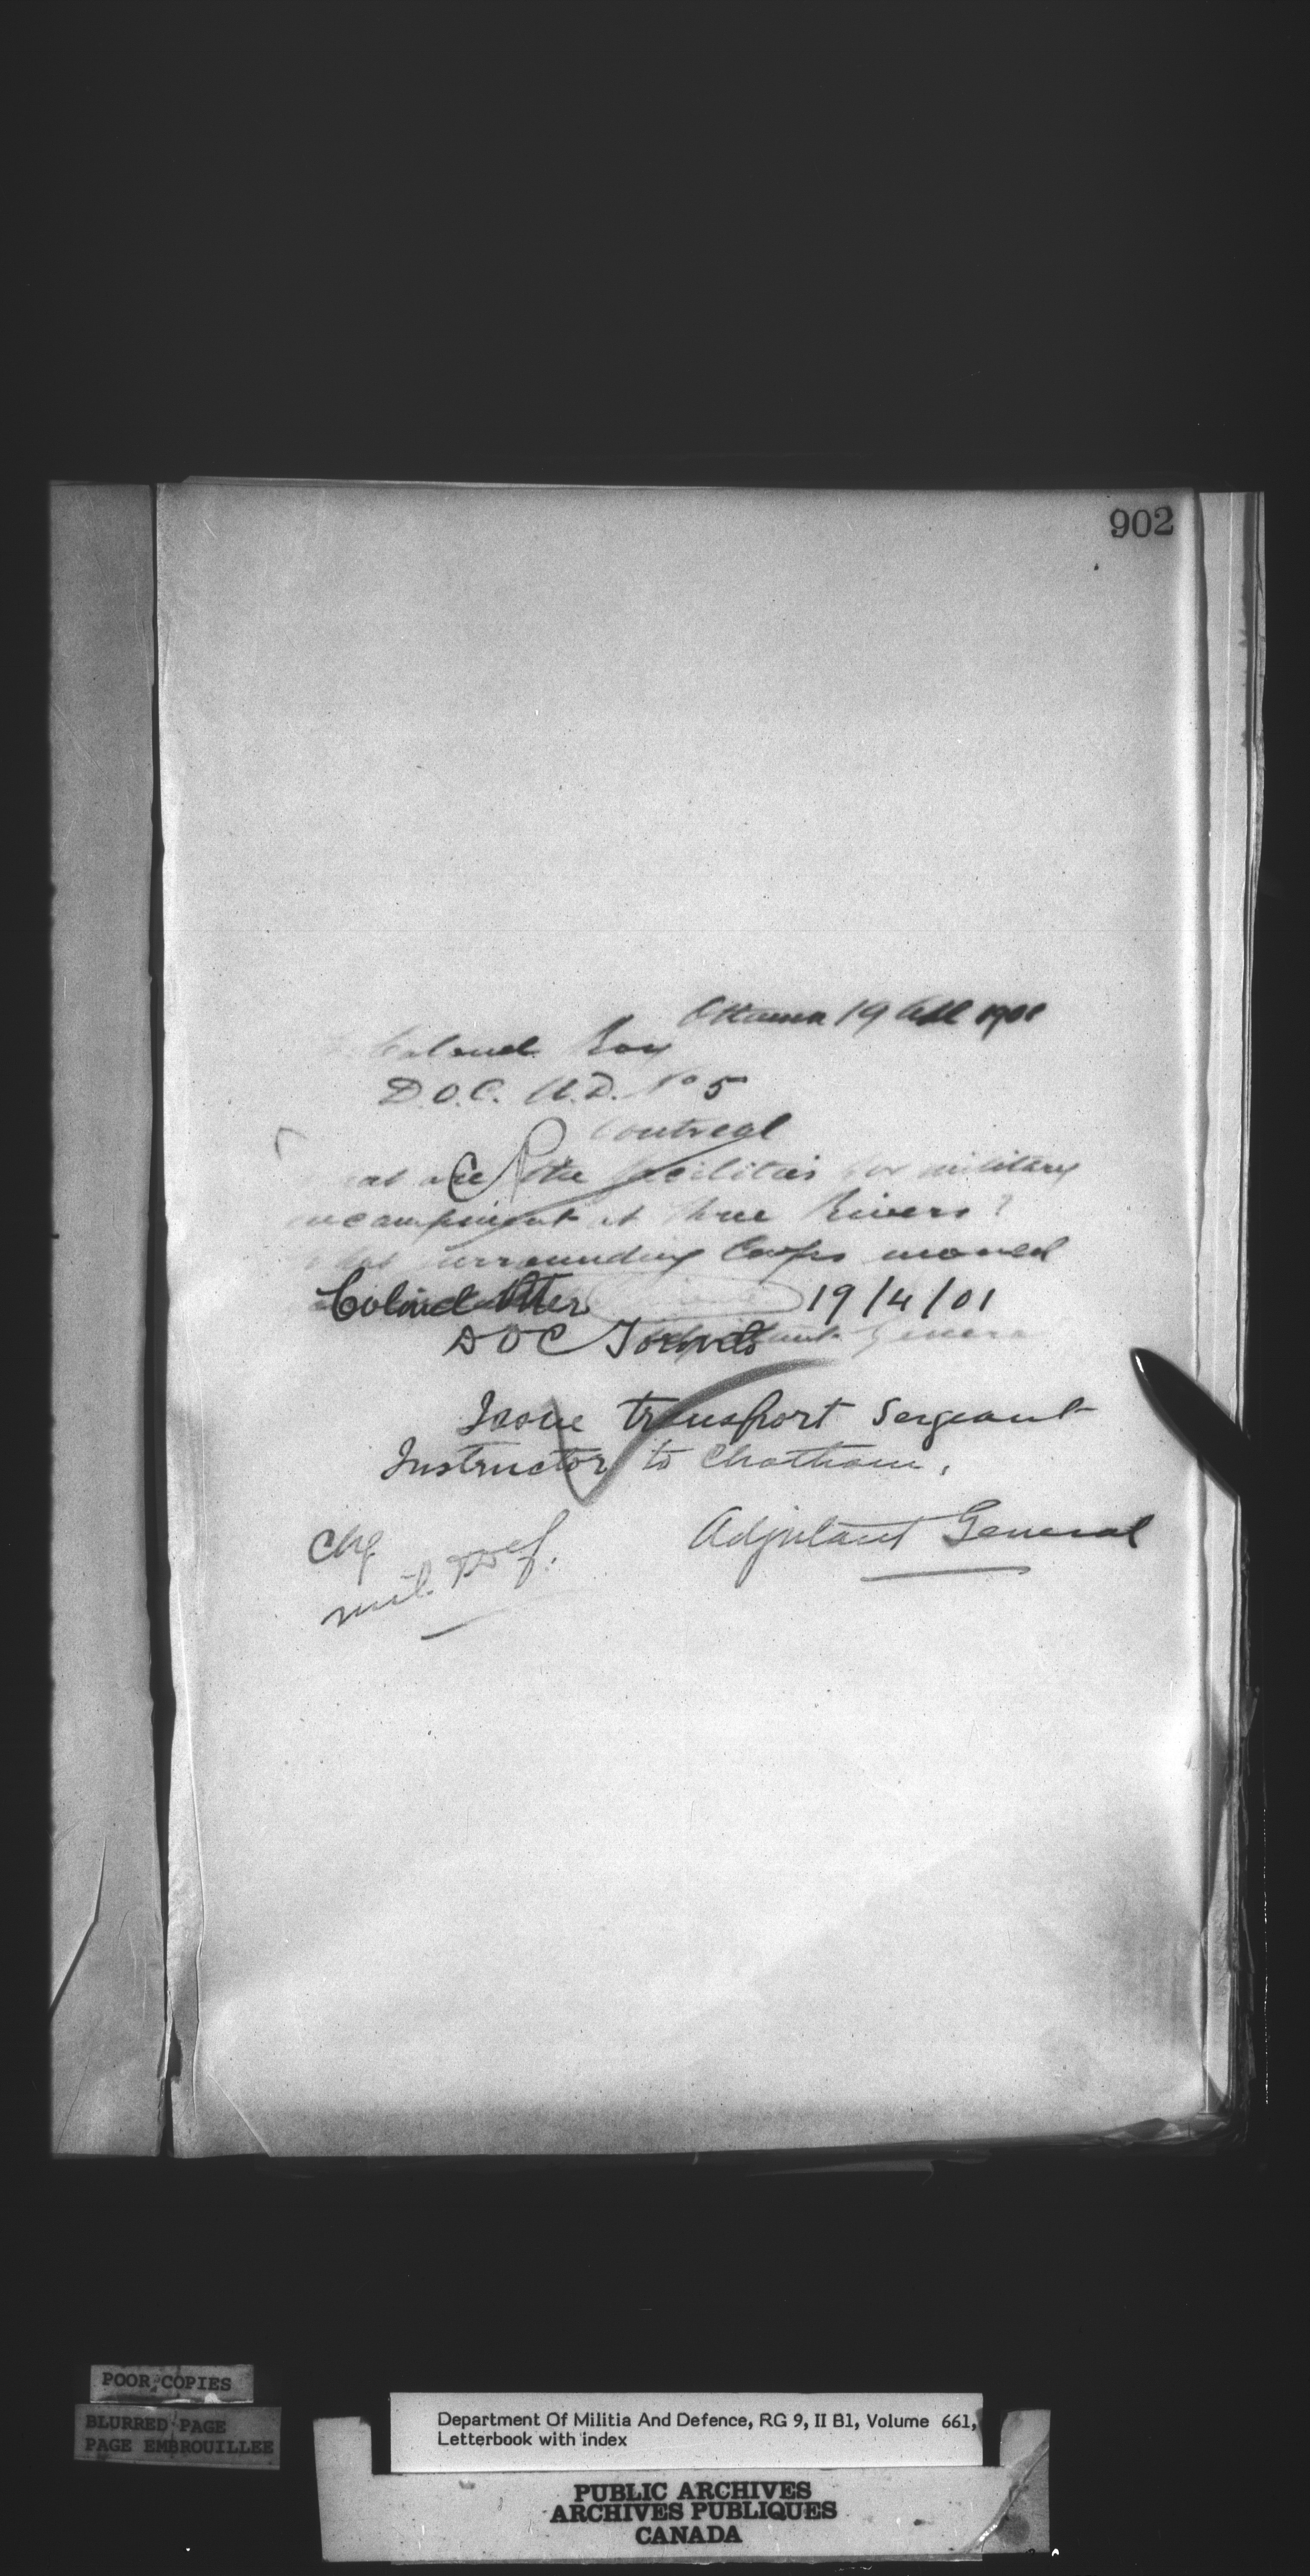 902
Ottawa 19 Apl 1901
Colonel Roy
D.O.C. M.D. No 5
Montreal
are the facilities for military
encampment at Three Rivers?
surrounding Corps
Colonel Otter 19/4/01
DOC Toronto
Adjutant General
Issue transport Sergeant
Instructor to Chatham.
Adjutant General
Chg
Mil. Def.
POOR COPIES
BLURRED PAGE
PAGE EMBROUILLEE
Department Of Militia And Defence, RG 9, II B1, Volume 661,
Letterbook with index
PUBLIC ARCHIVES
ARCHIVES PUBLIQUES
CANADA